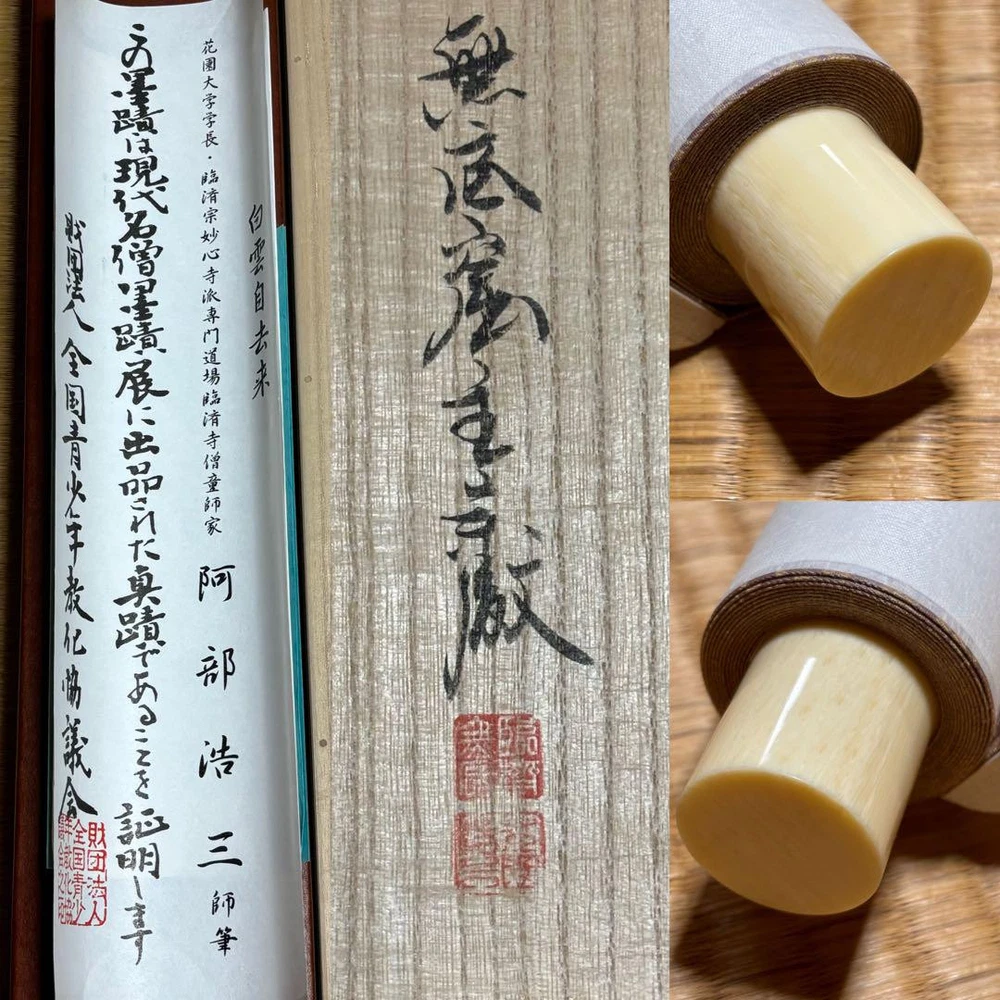 白雲自去来
花園大学学長・臨済宗妙心寺派専門道場臨済寺僧童師家
阿部浩三師筆
この墨蹟は現代名僧墨蹟展に出品された真蹟であることを証明します
財団法人全国青少年教化協議会
財団法人
全国青少
年教化協
議会之印
無底窟主宗徹